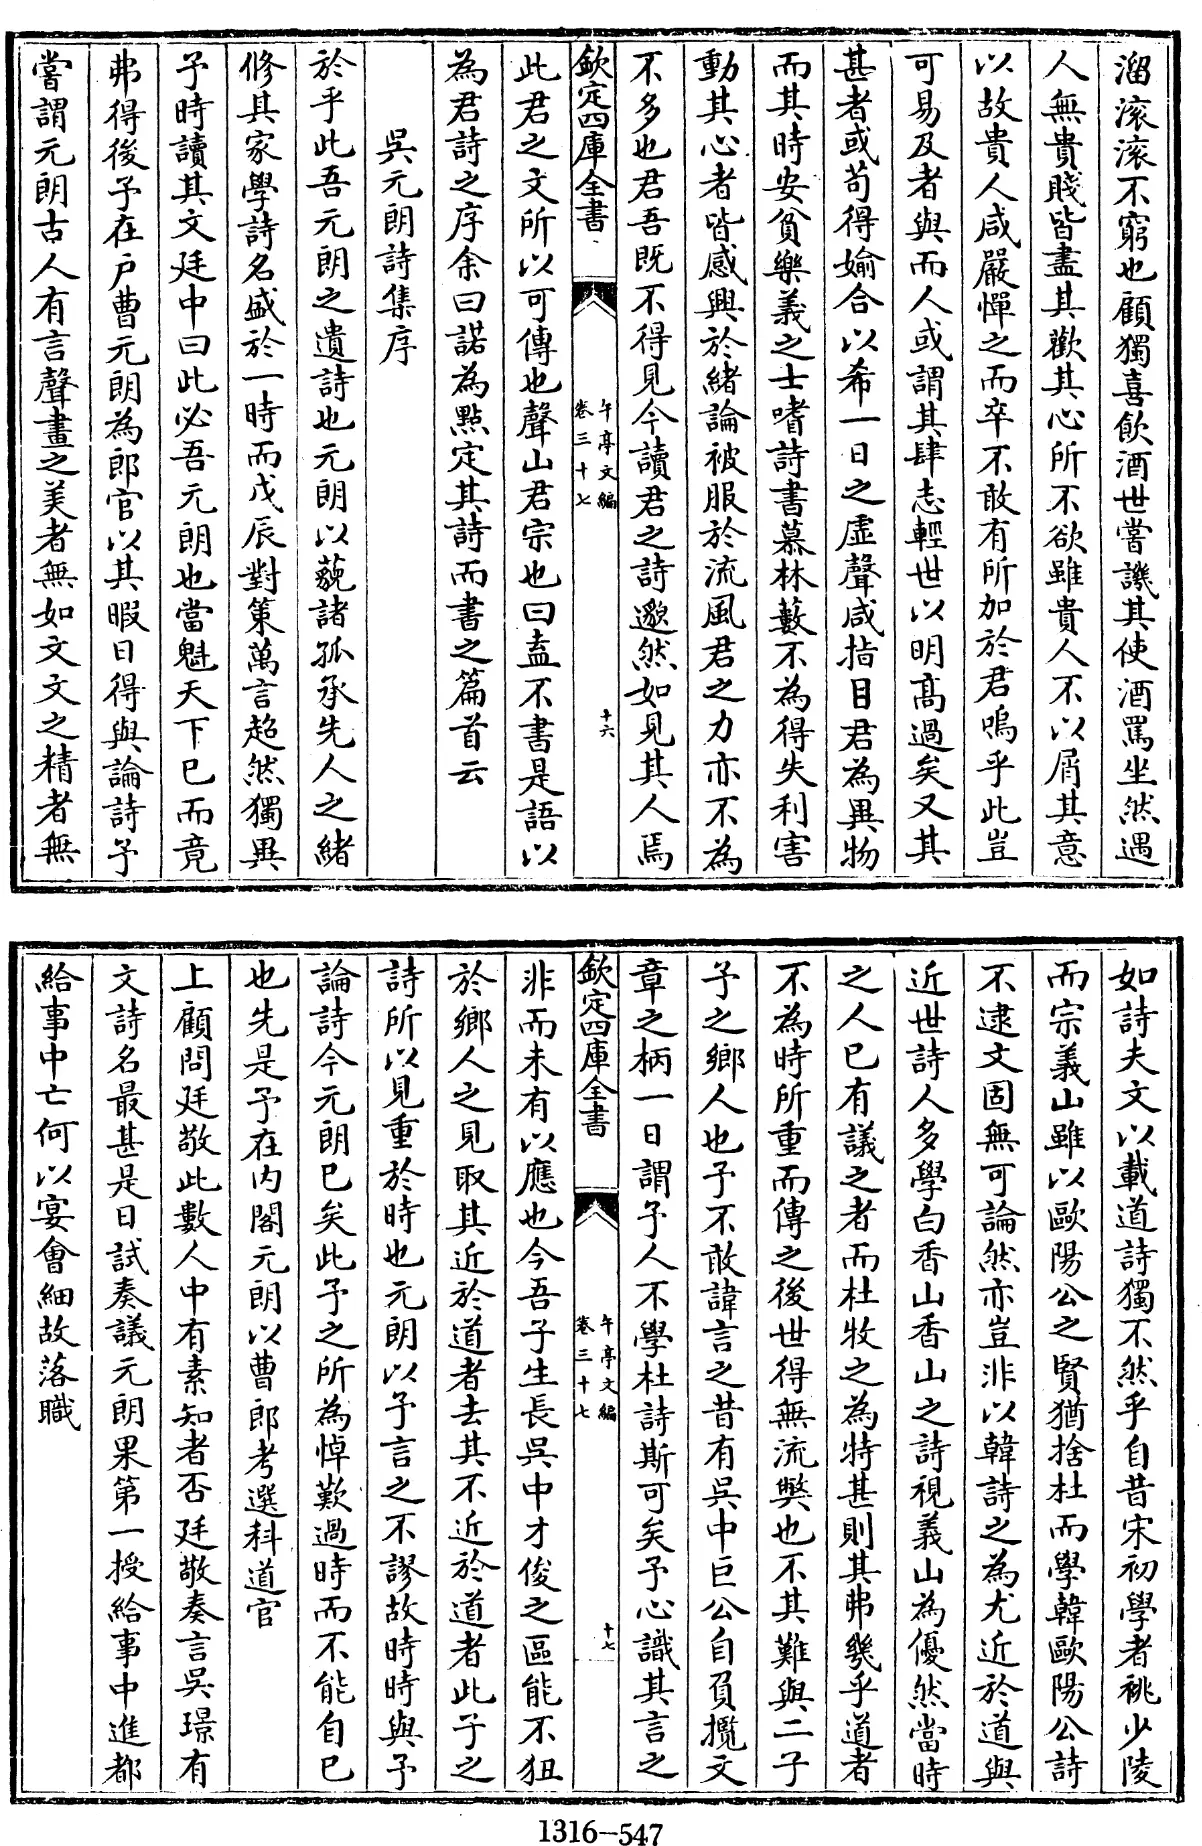 溜滚滚不窮也顧獨喜飲酒世嘗譏其使酒罵坐然遇
人無貴賤皆盡其歡其心所不欲雖貴人不以屑其意
以故貴人咸嚴憚之而卒不敢有所加於君嗚乎此豈
可易及者與而人或謂其肆志輕世以明髙過矣又其
甚者或茍得婾合以希一日之虛聲咸指目君為異物
而其時安貧樂義之士嗜詩書慕林藪不為得失利害
動其心者皆感興於緒論被服於流風君之力亦不為
不多也君吾既不得見今讀君之詩邈然如見其人焉
欽定四庫全書
午亭文編
卷三十七
十六
此君之文所以可傳也聲山君宗也曰盍不書是語以
為君詩之序余曰諾為點定其詩而書之篇首云
吳元朗詩集序
於乎此吾元朗之遺詩也元朗以藐諸孤承先人之緒
修其家學詩名盛於一時而戊辰對策萬言超然獨異
予時讀其文廷中曰此必吾元朗也當魁天下已而竟
弗得後予在户曹元朗為郎官以其暇日得與論詩予
嘗謂元朗古人有言聲畫之美者無如文文之精者無
如詩夫文以載道詩獨不然乎自昔宋初學者祧少陵
而宗義山雖以歐陽公之賢猶捨杜而學韓歐陽公詩
不逮文固無可論然亦豈非以韓詩之為尤近於道與
近世詩人多學白香山香山之詩視義山為優然當時
之人已有議之者而杜牧之為特甚則其弗幾乎道者
不為時所重而傳之後世得無流弊也不其難與二子
予之鄉人也予不敢諱言之昔有吳中巨公自負攬文
章之柄一日謂予人不學杜詩斯可矣予心識其言之
欽定四庫全書
午亭文編
卷三十七
十七
非而未有以應也今吾子生長吳中才俊之區能不狃
於鄉人之見取其近於道者去其不近於道者此予之
詩所以見重於時也元朗以予言之不謬故時時與予
論詩今元朗已矣此予之所為悼歎過時而不能自已
也先是予在内閣元朗以曹郎考選科道官
上顧問廷敬此數人中有素知者否廷敬奏言吳璟有
文詩名最甚是日試奏議元朗果第一授給事中進都
給事中亡何以宴會細故落職
1316-547